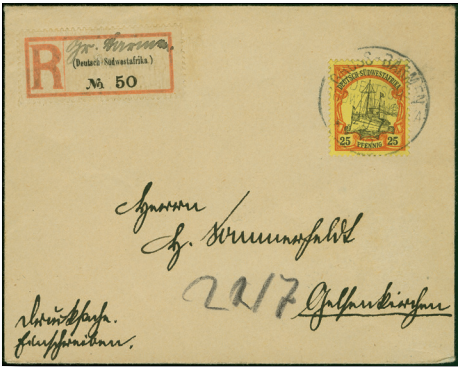 Gr. Barmen.
R (Deutsch-Südwestafrika.)
№ 50
GROSS-BARMEN
DEUTSCH-SÜDWESTAFRIKA
25 PFENNIG 25
Herrn
H. Sommerfeldt
2217 Gelsenkirchen
Drucksache.
Einschreiben.